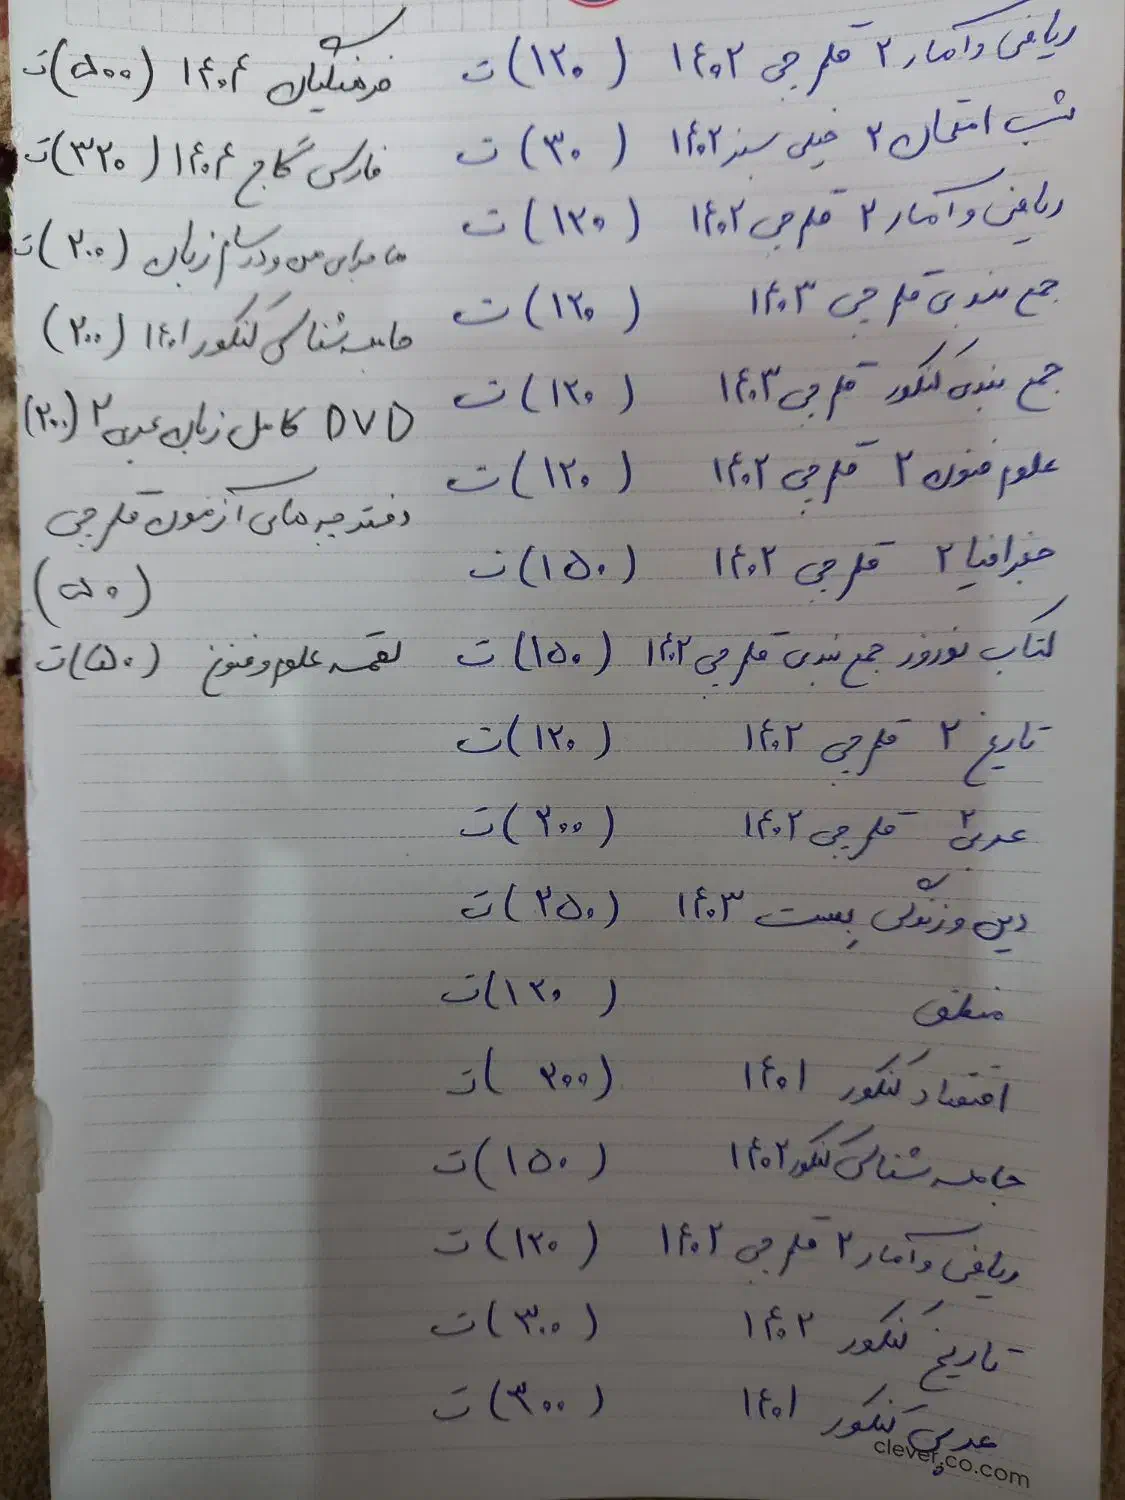 ریاضی و آمار ۲ قلم چی ۱۴۰۲ (۱۲۰) ت
شب امتحان ۲ خیلی سبز ۱۴۰۲ (۳۰) ت
ریاضی و آمار ۲ قلم چی ۱۴۰۲ (۱۲۰) ت
جمع بندی قلم چی ۱۴۰۳ (۱۲۰) ت
جمع بندی کنکور قلم چی ۱۴۰۳ (۱۲۰) ت
علوم فنون ۲ قلم چی ۱۴۰۲ (۱۲۰) ت
جغرافیا ۲ قلم چی ۱۴۰۲ (۱۵۰) ت
کتاب نوروز جمع بندی قلم چی ۱۴۰۲ (۱۵۰) ت
تاریخ ۲ قلم چی ۱۴۰۲ (۱۲۰) ت
عربی ۲ قلم چی ۱۴۰۲ (۲۰۰) ت
دین و زندگی بیست ۱۴۰۳ (۲۵۰) ت
منطق (۱۲۰) ت
اقتصاد کنکور ۱۴۰۱ (۲۰۰) ت
جامعه شناسی کنکور ۱۴۰۲ (۱۵۰) ت
ریاضی و آمار ۲ قلم چی ۱۴۰۲ (۱۲۰) ت
تاریخ کنکور ۱۴۰۲ (۳۰۰) ت
عربی کنکور ۱۴۰۱ (۳۰۰) ت
فرهنگیان ۱۴۰۴ (۵۰۰) ت
فارسی گاج ۱۴۰۴ (۳۲۰) ت
ماجرای من و درسام زبان (۲۰۰) ت
جامعه شناسی کنکور ۱۴۰۱ (۲۰۰)
DVD کامل زبان عربی ۲ (۲۰۰)
دفترچه های آزمون قلم چی
(۵۰)
لقمه علوم و فنون (۵۰) ت
clever.co.com